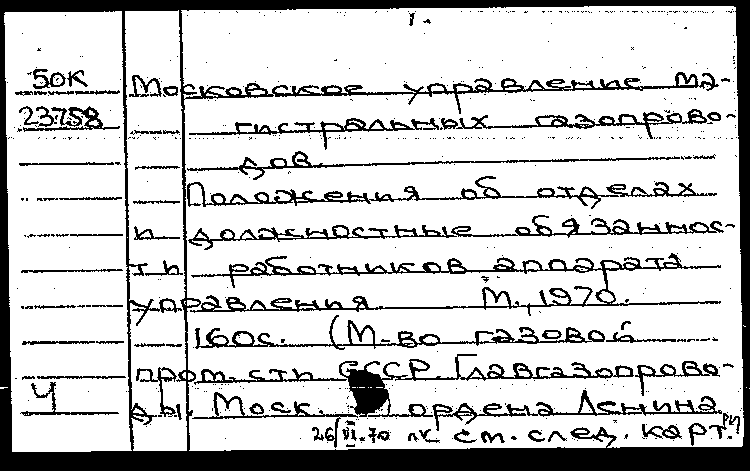 1.
50К Московское управление ма-
23758 гистральных газопрово-
дов.
Положения об отделах
и должностные обязаннос-
ти работников аппарата
управления. М., 1970.
160с. (М-во газовой
пром-сти СССР. Главгазопрово-
Ч ды. Моск. ордена Ленина
26/VI-70 см. след. карт.